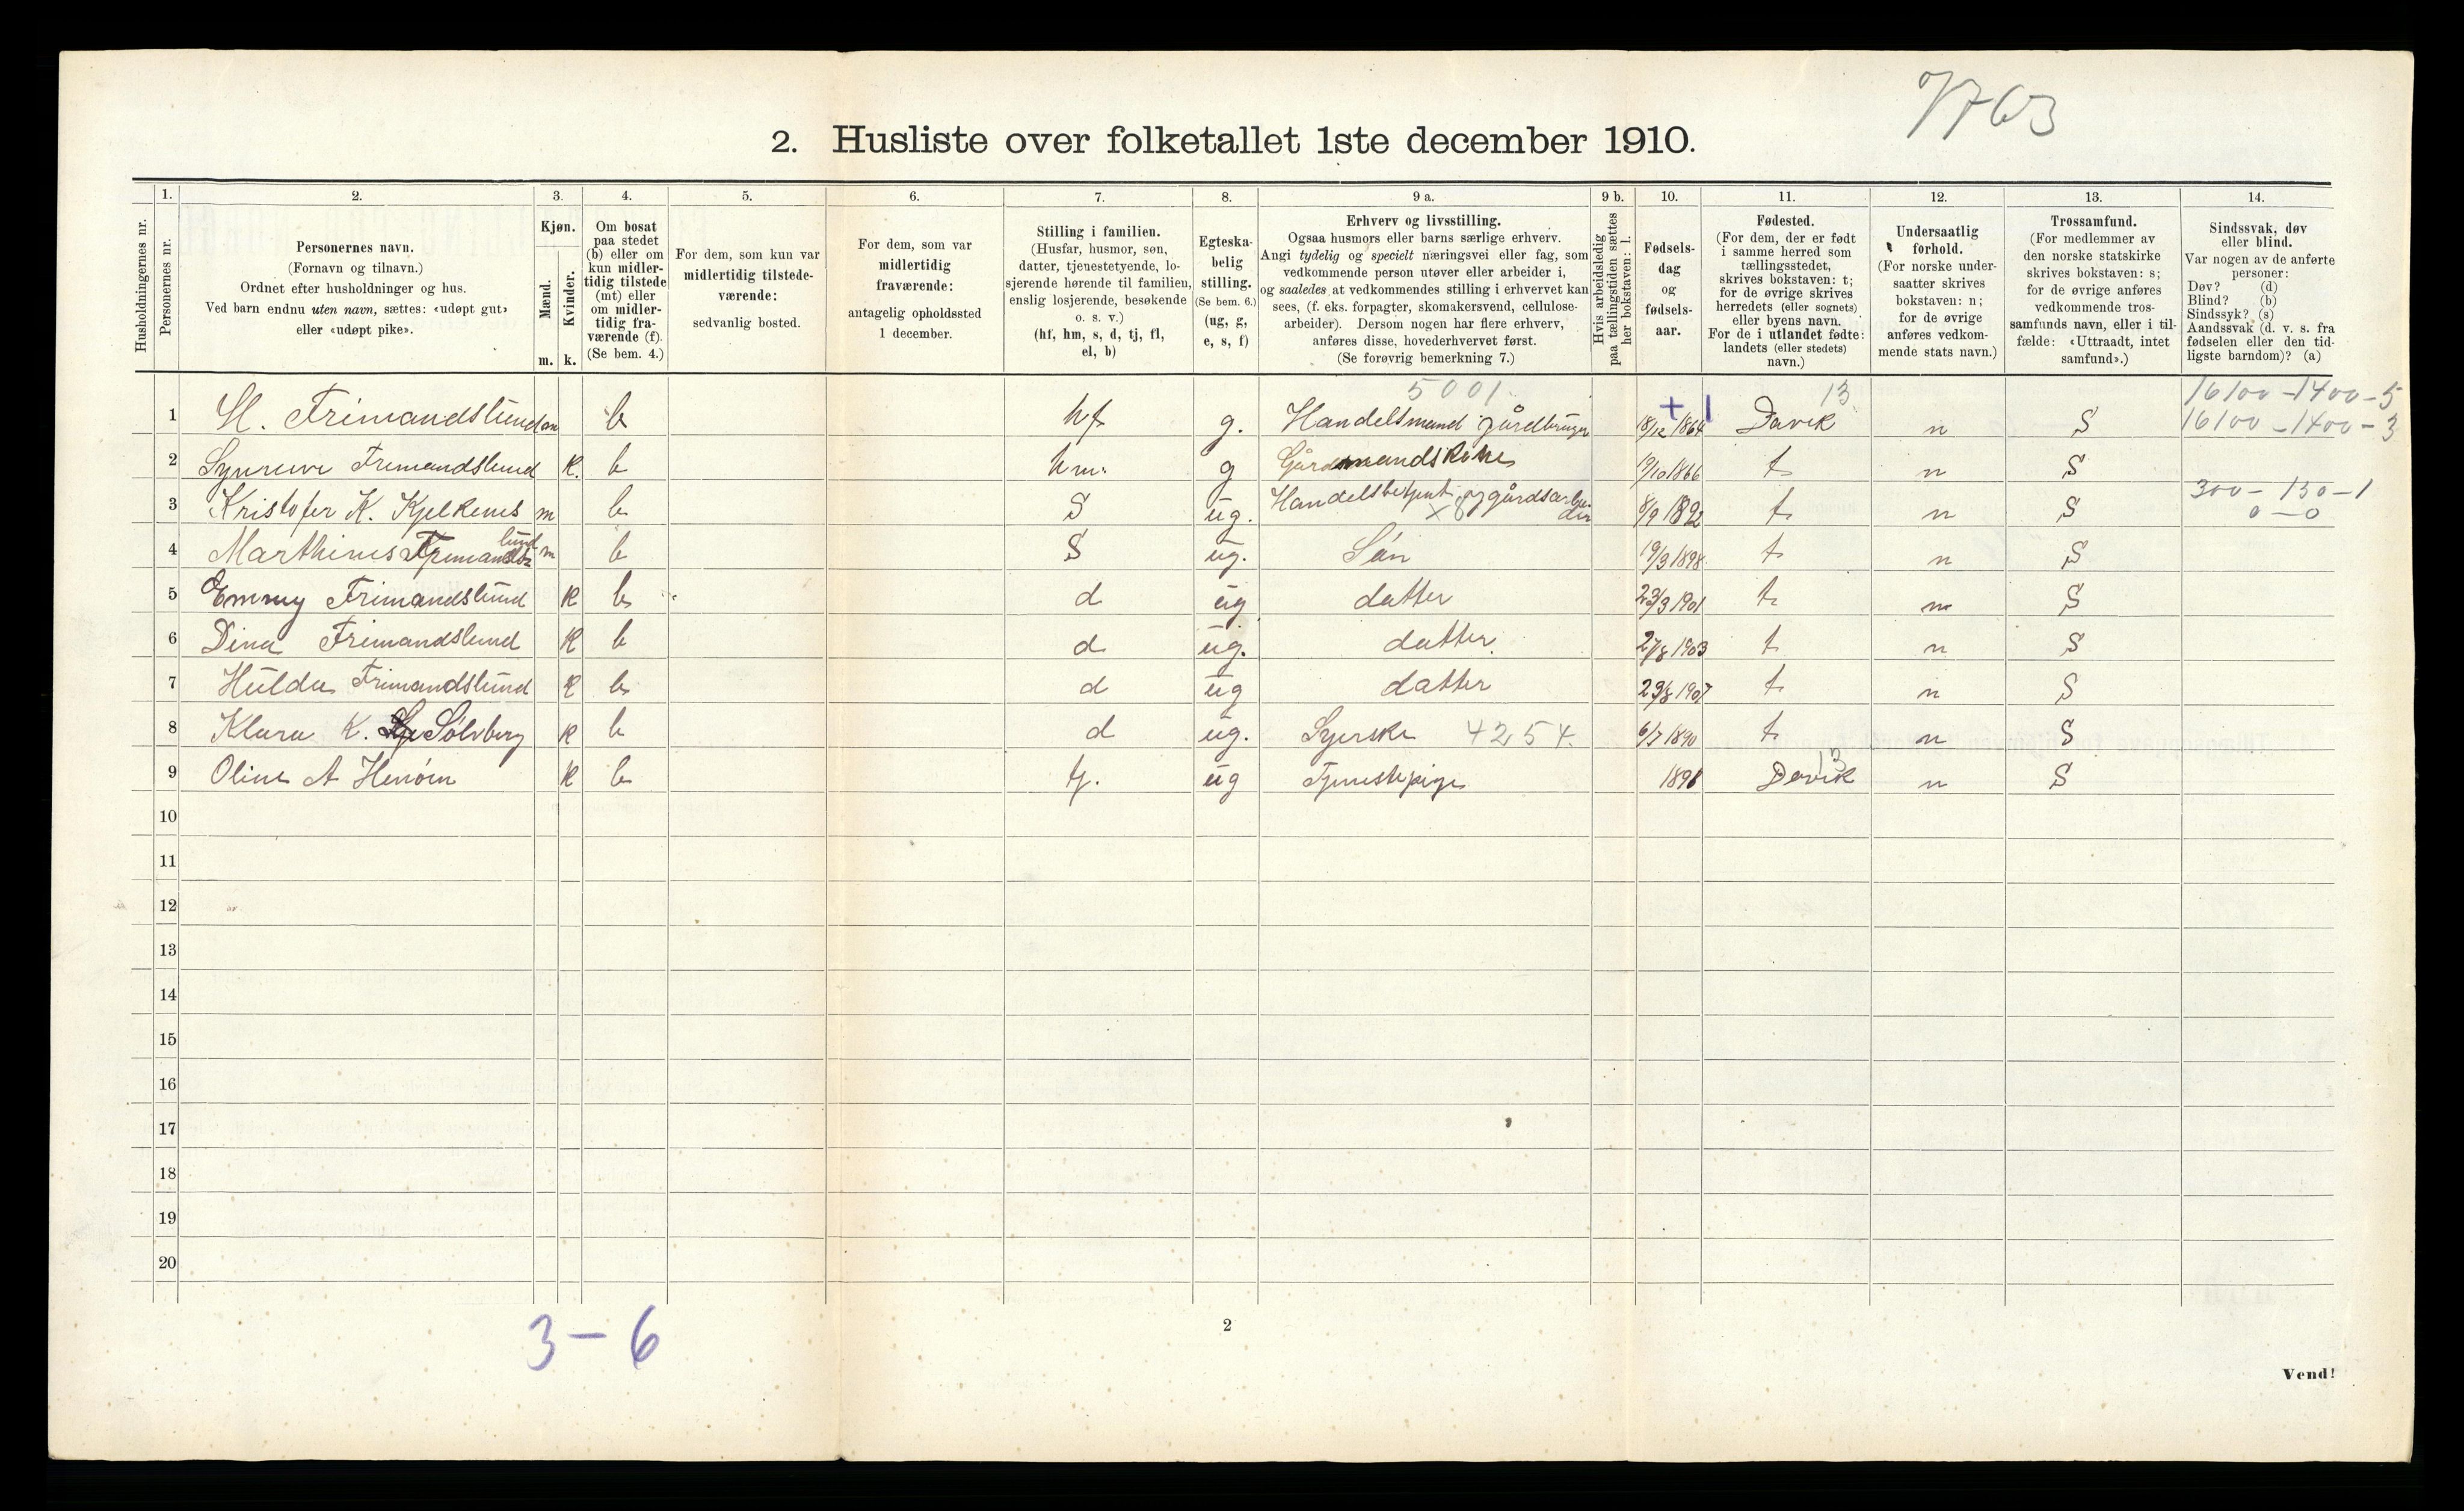 7763
2. Husliste over folketallet 1ste december 1910.
Husholdningernes nr.
1. Personernes nr.
2. Personernes navn. (Fornavn og tilnavn.) Ordnet efter husholdninger og hus. Ved barn endnu uten navn, sættes: «udøpt gut» eller «udøpt pike».
3. Kjøn. Mænd. m. Kvinder. k.
4. Om bosat paa stedet (b) eller om kun midler-tidig tilstede (mt) eller om midler-tidig fra-værende (f). (Se bem. 4.)
5. For dem, som kun var midlertidig tilstede-værende: sedvanlig bosted.
6. For dem, som var midlertidig fraværende: antagelig opholdssted 1 december.
7. Stilling i familien. (Husfar, husmor, søn, datter, tjenestetyende, lo-sjerende hørende til familien, enslig losjerende, besøkende o. s. v.) (hf, hm, s, d, tj, fl, el, b)
8. Egteska-belig stilling. (Se bem. 6.) (ug, g, e, s, f)
9 a. Erhverv og livsstilling. Ogsaa husmors eller barns særlige erhverv. Angi tydelig og specielt næringsvei eller fag, som vedkommende person utøver eller arbeider i, og saaledes at vedkommendes stilling i erhvervet kan sees, (f. eks. forpagter, skomakersvend, cellulose-arbeider). Dersom nogen har flere erhverv, anføres disse, hovederhvervet først. (Se forøvrig bemerkning 7.)
9 b. Hvis arbeidsledig paa tællingstiden sættes her bokstaven: l.
10. Fødsels-dag og fødsels-aar.
11. Fødested. (For dem, der er født i samme herred som tællingsstedet, skrives bokstaven: t; for de øvrige skrives herredets (eller sognets) eller byens navn. For de i utlandet fødte: landets (eller stedets) navn.)
12. Undersaatlig forhold. (For norske under-saatter skrives bokstaven: n; for de øvrige anføres vedkom-mende stats navn.)
13. Trossamfund. (For medlemmer av den norske statskirke skrives bokstaven: s; for de øvrige anføres vedkommende tros-samfunds navn, eller i til-fælde: «Uttraadt, intet samfund».)
14. Sindssvak, døv eller blind. Var nogen av de anførte personer: Døv? (d) Blind? (b) Sindssyk? (s) Aandssvak (d. v. s. fra fødselen eller den tid-ligste barndom)? (a)
5001 13 16100 - 1400 - 5
1 H. Frimandslund m b hf g. Handelsmand gårdbruger + 1 18/12 1864 Davik n S 16100 - 1400 - 3
2 Frimandslund K. b hm. g Gårdmandskone 19/10 1866 t n S
3 Kristofer K. Kjelkenes m b S ug. 8/9 1892 t n S 300 - 150 - 1
0 - 0
4 Marthinus Frimandslund m b S ug. Sön 19/3 1898 t n S
5 Emmy Frimandslund K b d ug datter 23/3 1901 t n S
6 Dina Frimandslund K b d ug. datter 27/8 1903 t n S
7 Hulda Frimandslund K b d ug datter 29/8 1907 t n S
8 Klara K. Sölvberg K b d ug. Syerske 4254. 6/7 1890 t n S
9 Oline A Henöen K b tj. ug Tjenestepige 1898 Davik 13 n S
10
11
12
13
14
15
16
17
18
19
20
3 - 6
2
Vend!